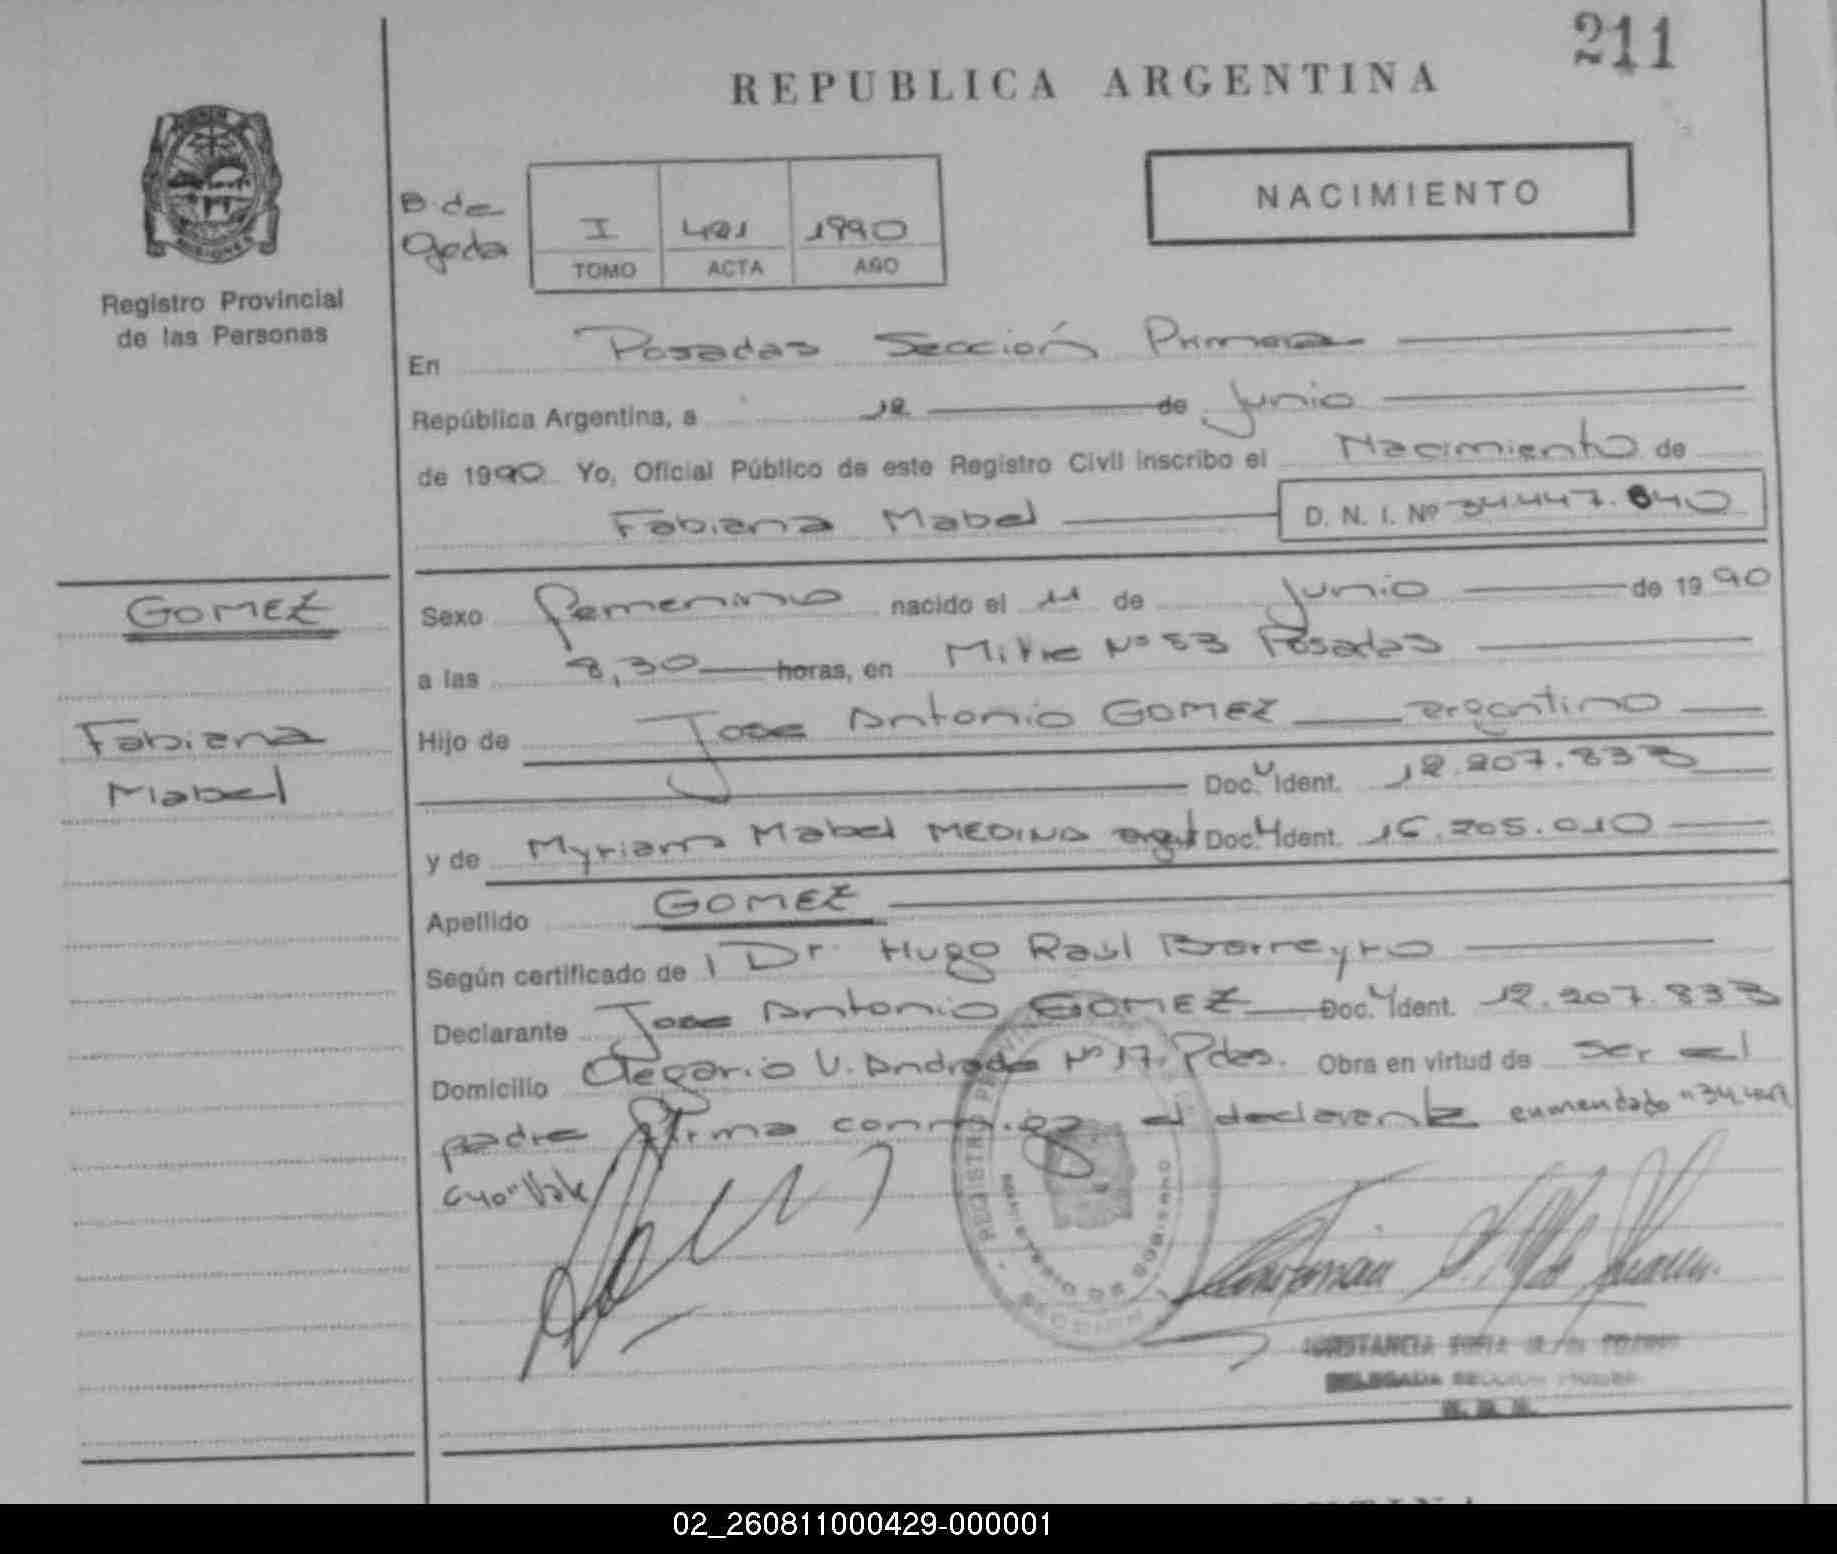 211
REPUBLICA ARGENTINA
Registro Provincial
de las Personas
B. de
I 421 1990
TOMO ACTA AÑO
NACIMIENTO
En Posadas Sección Primera
República Argentina, a 12 de Junio
de 1990 Yo, Oficial Público de este Registro Civil inscribo el Nacimiento de
Fabiana Mabel D. N. I. Nº 34.447.640
GOMEZ
Fabiana
Mabel
Sexo femenino nacido el 11 de Junio de 1990
a las 8,30 horas, en Mitre Nº 53 Posadas
Hijo de Jose Antonio GOMEZ argentino
Doc. Ident. 12.207.833
y de Myriam Mabel MEDINA Doc. Ident. 16.205.010
Apellido GOMEZ
Según certificado de Dr. Hugo Raul Barreyro
Declarante Jose Antonio GOMEZ Doc. Ident. 12.207.833
Domicilio Olegario V. Andrade Nº 17. Pdas. Obra en virtud de ser el
padre firma conmigo el declarante enmendado
Vale
REGISTRO
MINISTERIO DE GOBIERNO
SECCION
DELEGADA SECCION
02_260811000429-000001